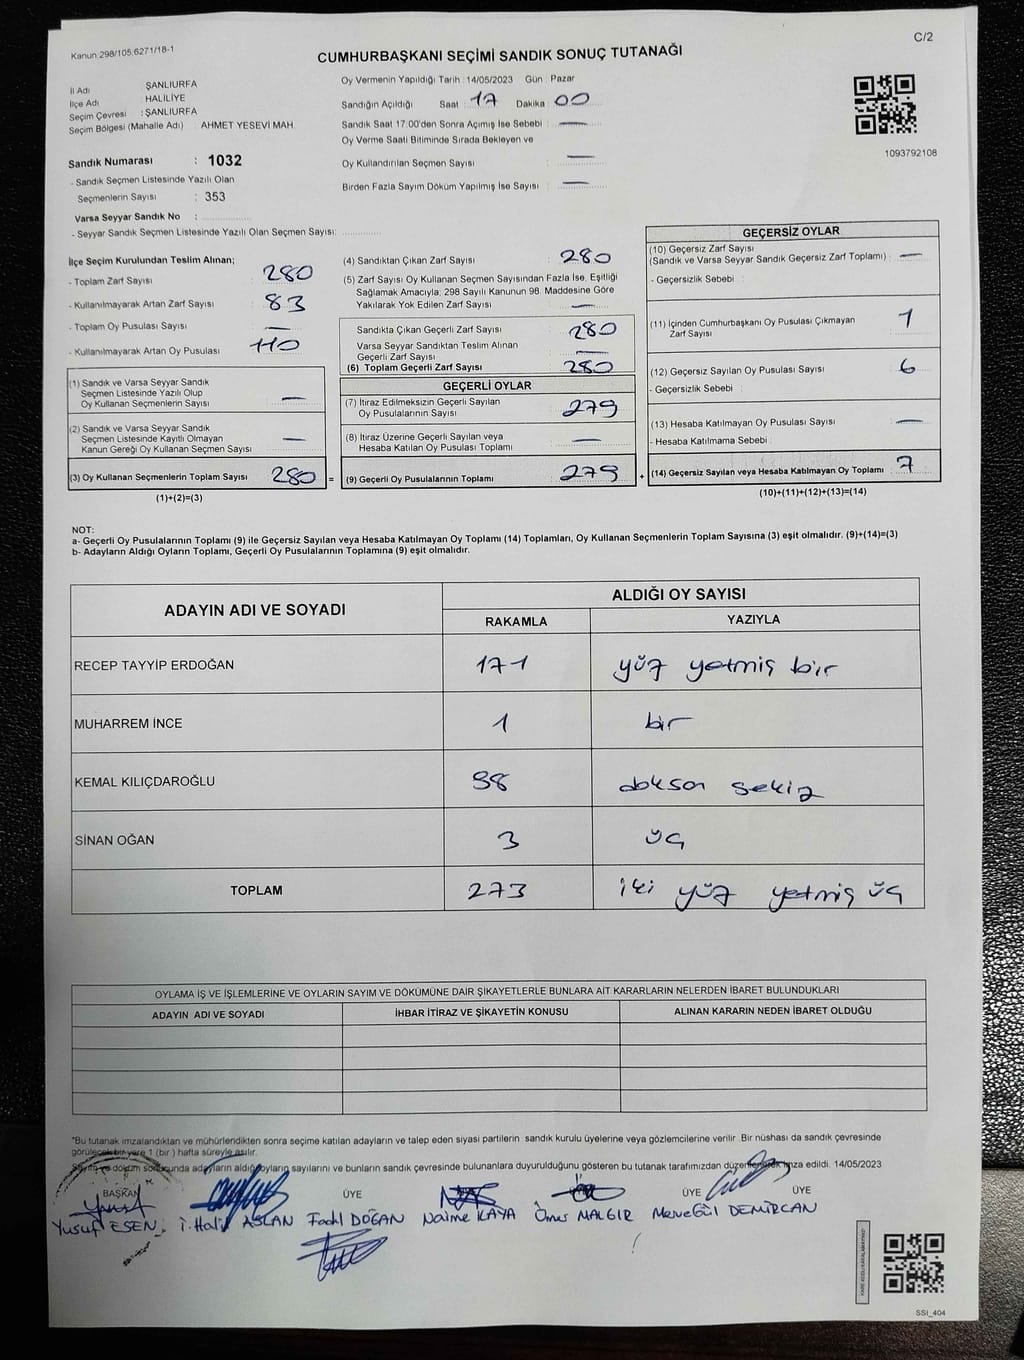 Kanun 298/105,6271/18-1
C/2
CUMHURBAŞKANI SEÇİMİ SANDIK SONUÇ TUTANAĞI
İl Adı ŞANLIURFA
İlçe Adı HALİLİYE
Seçim Çevresi : ŞANLIURFA
Seçim Bölgesi (Mahalle Adı) AHMET YESEVİ MAH.
Oy Vermenin Yapıldığı Tarih : 14/05/2023 Gün : Pazar
Sandığın Açıldığı Saat : 17 Dakika : 00
Sandık Saat 17:00'den Sonra Açılmış İse Sebebi : —
Oy Verme Saati Bitiminde Sırada Bekleyen ve
Oy Kullandırılan Seçmen Sayısı : —
Birden Fazla Sayım Döküm Yapılmış İse Sayısı : —
1093792108
Sandık Numarası : 1032
- Sandık Seçmen Listesinde Yazılı Olan
Seçmenlerin Sayısı : 353
Varsa Seyyar Sandık No :
- Seyyar Sandık Seçmen Listesinde Yazılı Olan Seçmen Sayısı:
İlçe Seçim Kurulundan Teslim Alınan;
- Toplam Zarf Sayısı 280
- Kullanılmayarak Artan Zarf Sayısı 83
- Toplam Oy Pusulası Sayısı —
- Kullanılmayarak Artan Oy Pusulası 110
(1) Sandık ve Varsa Seyyar Sandık
Seçmen Listesinde Yazılı Olup
Oy Kullanan Seçmenlerin Sayısı —
(2) Sandık ve Varsa Seyyar Sandık
Seçmen Listesinde Kayıtlı Olmayan
Kanun Gereği Oy Kullanan Seçmen Sayısı —
(3) Oy Kullanan Seçmenlerin Toplam Sayısı 280 =
(1)+(2)=(3)
(4) Sandıktan Çıkan Zarf Sayısı 280
(5) Zarf Sayısı Oy Kullanan Seçmen Sayısından Fazla İse, Eşitliği
Sağlamak Amacıyla, 298 Sayılı Kanunun 98. Maddesine Göre
Yakılarak Yok Edilen Zarf Sayısı —
Sandıkta Çıkan Geçerli Zarf Sayısı 280
Varsa Seyyar Sandıktan Teslim Alınan
Geçerli Zarf Sayısı —
(6) Toplam Geçerli Zarf Sayısı 280
GEÇERLİ OYLAR
(7) İtiraz Edilmeksizin Geçerli Sayılan
Oy Pusulalarının Sayısı 279
(8) İtiraz Üzerine Geçerli Sayılan veya
Hesaba Katılan Oy Pusulası Toplamı —
(9) Geçerli Oy Pusulalarının Toplamı 279 +
GEÇERSİZ OYLAR
(10) Geçersiz Zarf Sayısı
(Sandık ve Varsa Seyyar Sandık Geçersiz Zarf Toplamı) : —
- Geçersizlik Sebebi :
(11) İçinden Cumhurbaşkanı Oy Pusulası Çıkmayan
Zarf Sayısı 1
(12) Geçersiz Sayılan Oy Pusulası Sayısı 6
- Geçersizlik Sebebi :
(13) Hesaba Katılmayan Oy Pusulası Sayısı —
- Hesaba Katılmama Sebebi :
(14) Geçersiz Sayılan veya Hesaba Katılmayan Oy Toplamı 7
(10)+(11)+(12)+(13)=(14)
NOT:
a- Geçerli Oy Pusulalarının Toplamı (9) ile Geçersiz Sayılan veya Hesaba Katılmayan Oy Toplamı (14) Toplamları, Oy Kullanan Seçmenlerin Toplam Sayısına (3) eşit olmalıdır. (9)+(14)=(3)
b- Adayların Aldığı Oyların Toplamı, Geçerli Oy Pusulalarının Toplamına (9) eşit olmalıdır.
ADAYIN ADI VE SOYADI ALDIĞI OY SAYISI
RAKAMLA YAZIYLA
RECEP TAYYİP ERDOĞAN 171 yüz yetmiş bir
MUHARREM İNCE 1 bir
KEMAL KILIÇDAROĞLU 98 doksan sekiz
SİNAN OĞAN 3 üç
TOPLAM 273 iki yüz yetmiş üç
OYLAMA İŞ VE İŞLEMLERİNE VE OYLARIN SAYIM VE DÖKÜMÜNE DAİR ŞİKAYETLERLE BUNLARA AİT KARARLARIN NELERDEN İBARET BULUNDUKLARI
ADAYIN ADI VE SOYADI İHBAR İTİRAZ VE ŞİKAYETİN KONUSU ALINAN KARARIN NEDEN İBARET OLDUĞU
*Bu tutanak imzalandıktan ve mühürlendikten sonra seçime katılan adayların ve talep eden siyasi partilerin sandık kurulu üyelerine veya gözlemcilerine verilir. Bir nüshası da sandık çevresinde
görülecek bir yere 1 (bir ) hafta süreyle asılır.
Sayım ve döküm sonucunda adayların aldığı oyların sayılarını ve bunların sandık çevresinde bulunanlara duyurulduğunu gösteren bu tutanak tarafımızdan düzenlenerek imza edildi. 14/05/2023
BAŞKAN ÜYE ÜYE ÜYE
Yusuf ESEN İ.Halil ASLAN Fadıl DOĞAN Naime KAYA Ömer MALGIR Merve Gül DEMİRCAN
SSI_404